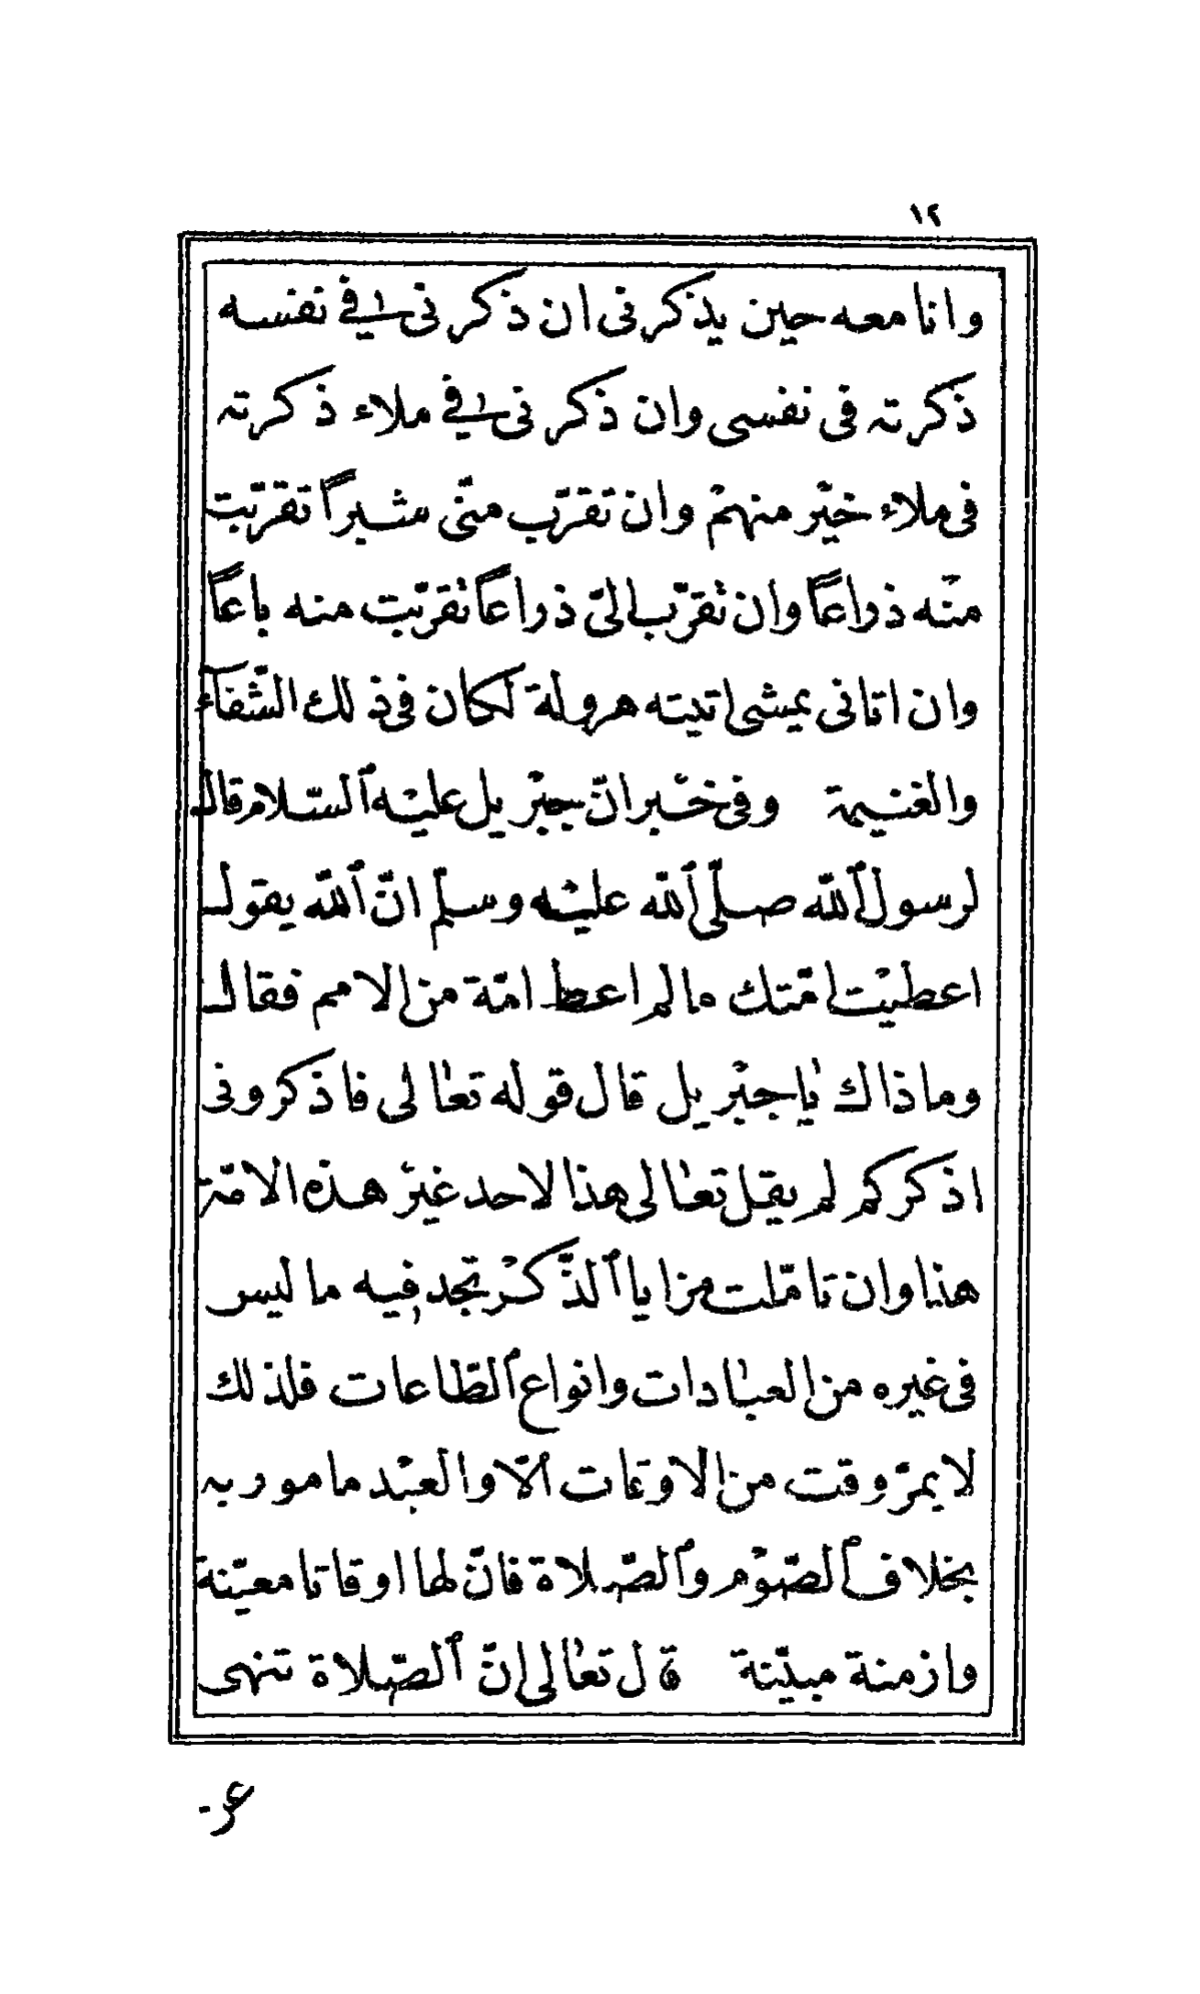 ١٢
وانا معه حين يذكرنى ان ذكرنى فى نفسه
ذكرته فى نفسى وان ذكرنى فى ملاء ذكرته
فى ملاء خيْر منهمْ وان تقرّب منّى شبراً تقرّبت
منْه ذراعاً وان تقرّب الىّ ذراعاً تقرّبت منه باعاً
وان اتانى يمشى اتيته هرولة لكان فى ذلك الشّفآء
والغنيمة وفى خبْر انّ جبْريل عليْه ٱلسّلام قال
لرسول ٱللّه صلّى ٱللّه عليْه وسلّم انّ ٱللّه يقول
اعطيْت امّتك ما لم اعط امّة من الامم فقال
وما ذاك يٰا جبْريل قال قوله تعٰالى فاذكرونى
اذكركم لم يقل تعٰالى هذا لاحد غيْر هذه الامّة
هذا وان تامّلت مزايا ٱلذّكْر تجد فيه ما ليس
فى غيره من العبٰادات وانواع ٱلطّاعات فلذلك
لا يمرّ وقت من الاوقات الّا والعبْد مامور به
بخلاف ٱلصّوْم وٱلصّلاة فانّ لها اوقاتا معيّنة
وازمنة مبيّنة قال تعٰالى انّ ٱلصّلاة تنهى
عن